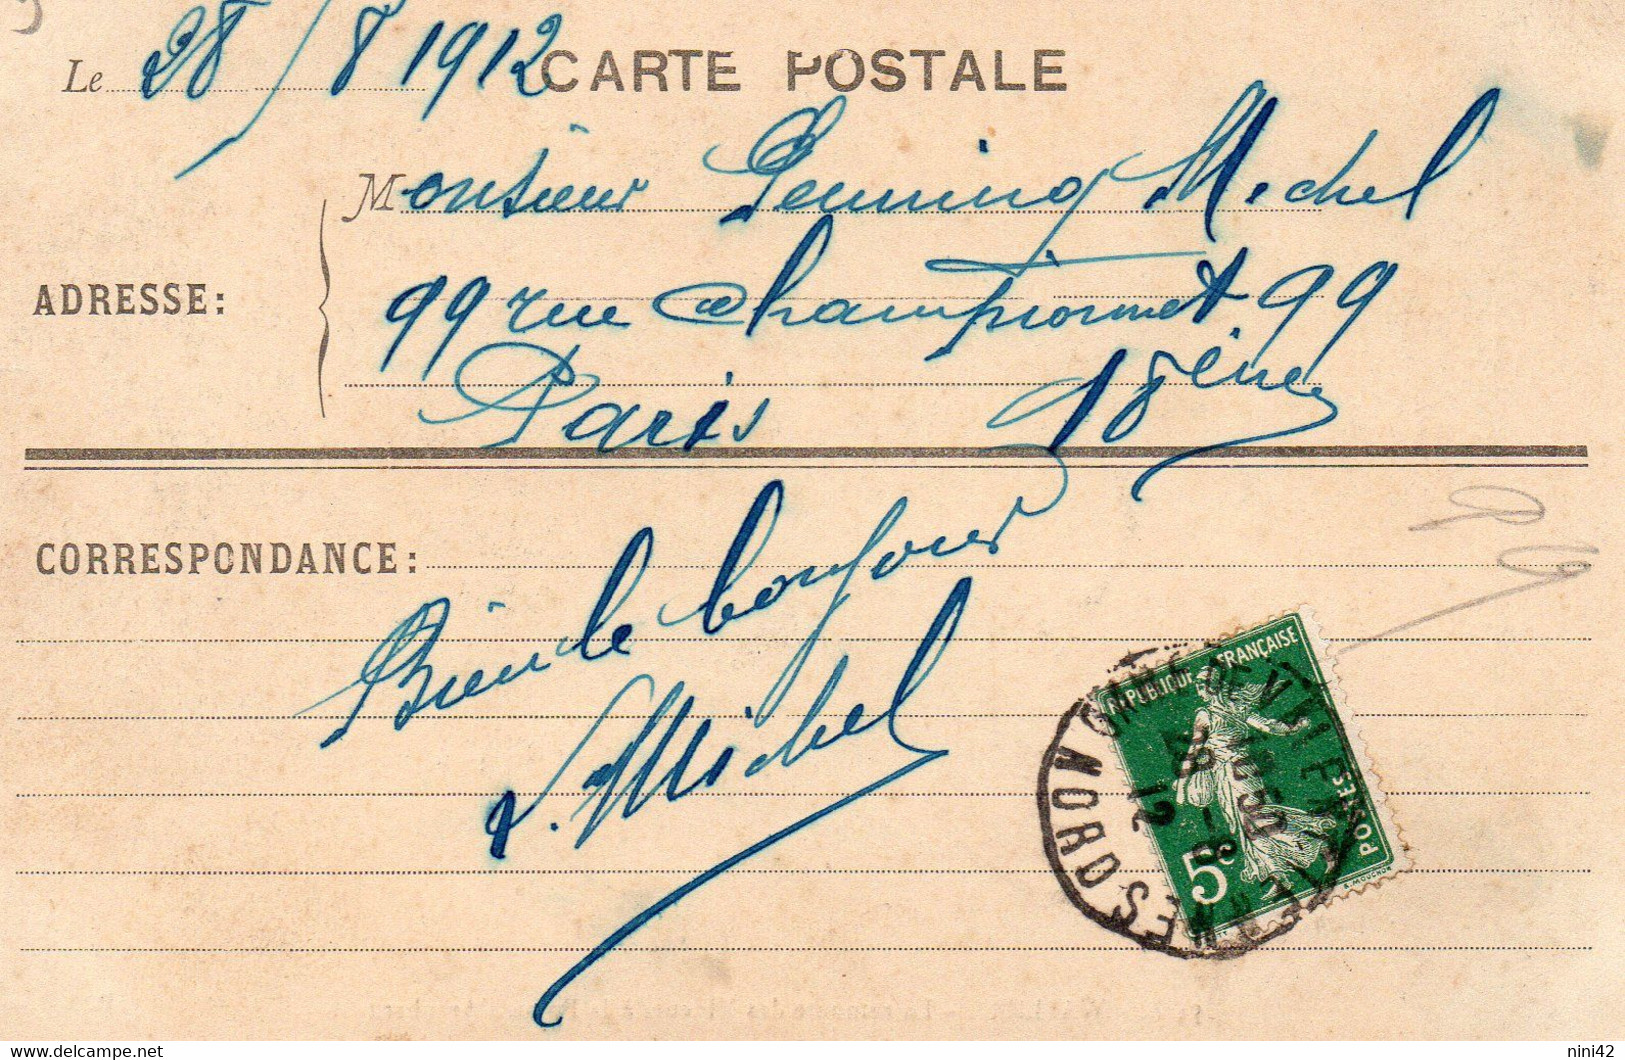 Le 28/8 1912 CARTE POSTALE
Monsieur Penning Michel
ADRESSE:
99 rue Championnet 99
Paris 18ème
CORRESPONDANCE:
Bien le bonjour
Michel
RÉPUBLIQUE FRANÇAISE
POSTES
5c
GARE DE
28 -8
12
NORD
nini42